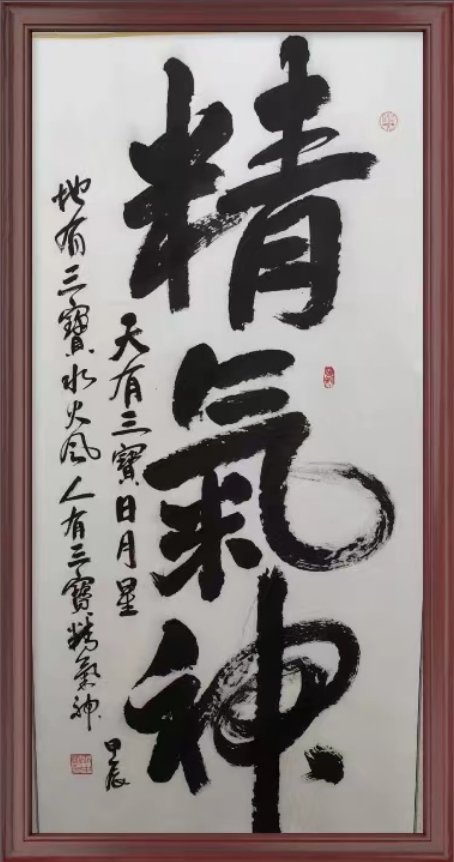 精氣神
天有三寶日月星
地有三寶水火風人有三寶精氣神
甲辰